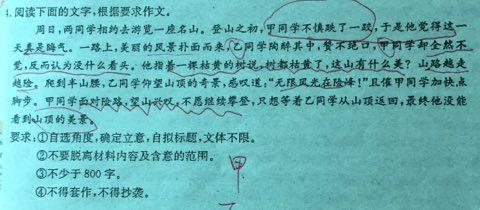 4.阅读下面的文字,根据要求作文。
周日,两同学相约去游览一座名山。登山之初,甲同学不慎跌了一跤,于是他觉得这一
天真是晦气。一路上,美丽的风景扑面而来,乙同学陶醉其中,赞不绝口,甲同学却全然不
觉,反而认为没什么看头。他指着一棵枯黄的树说,树都枯黄了,这山有什么美?山路越走
越险。爬到半山腰,乙同学仰望山顶的奇景,感叹道:“无限风光在险峰!”且催甲同学加快点
脚步。甲同学面对险路,望山兴叹,不愿继续攀登,只想等着乙同学从山顶返回,最终他没能
看到山顶的美景。
要求:①自选角度,确定立意,自拟标题,文体不限。
②不要脱离材料内容及含意的范围。
③不少于800字。
④不得套作,不得抄袭。
甲
乙